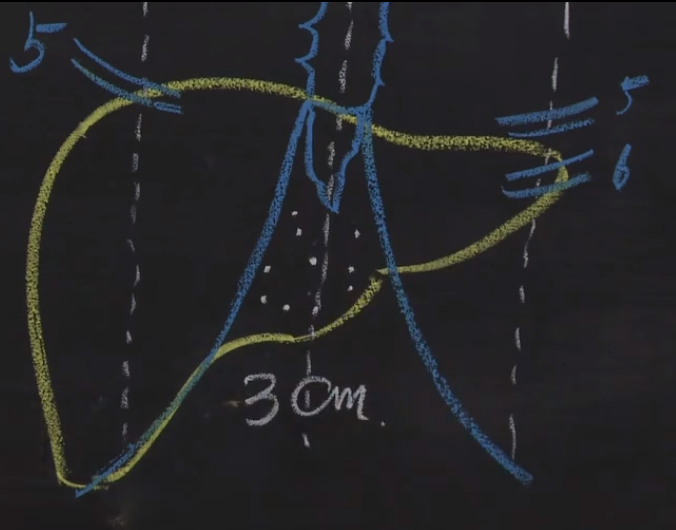 5
5
6
3 cm.